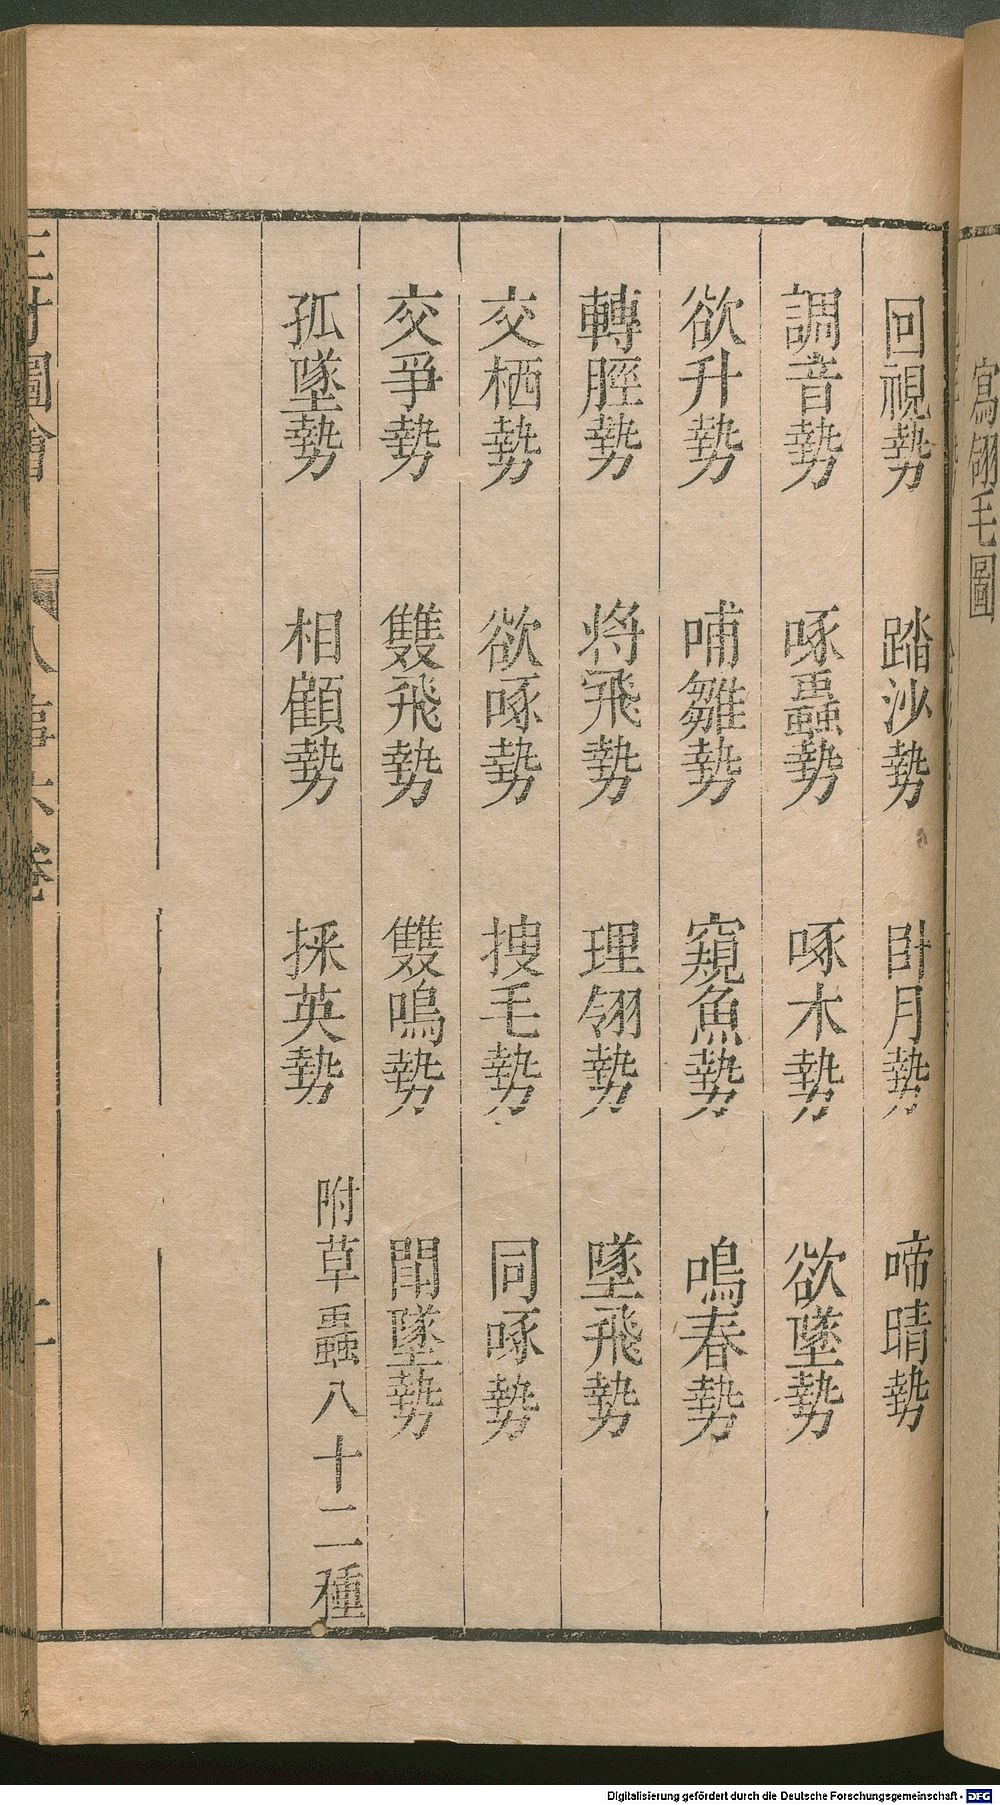 寫翎毛圖
回視勢 踏沙勢 臥月勢 啼晴勢
調音勢 啄蟲勢 啄木勢 欲墜勢
欲升勢 哺雛勢 窺魚勢 鳴春勢
轉脛勢 将飛勢 理翎勢 墜飛勢
交栖勢 欲啄勢 搜毛勢 同啄勢
交爭勢 雙飛勢 雙鳴勢 閗墜勢
孤墜勢 相顧勢 採英勢 附草蟲八十二種
三才圖會 人事六卷 十一
Digitalisierung gefördert durch die Deutsche Forschungsgemeinschaft - DFG